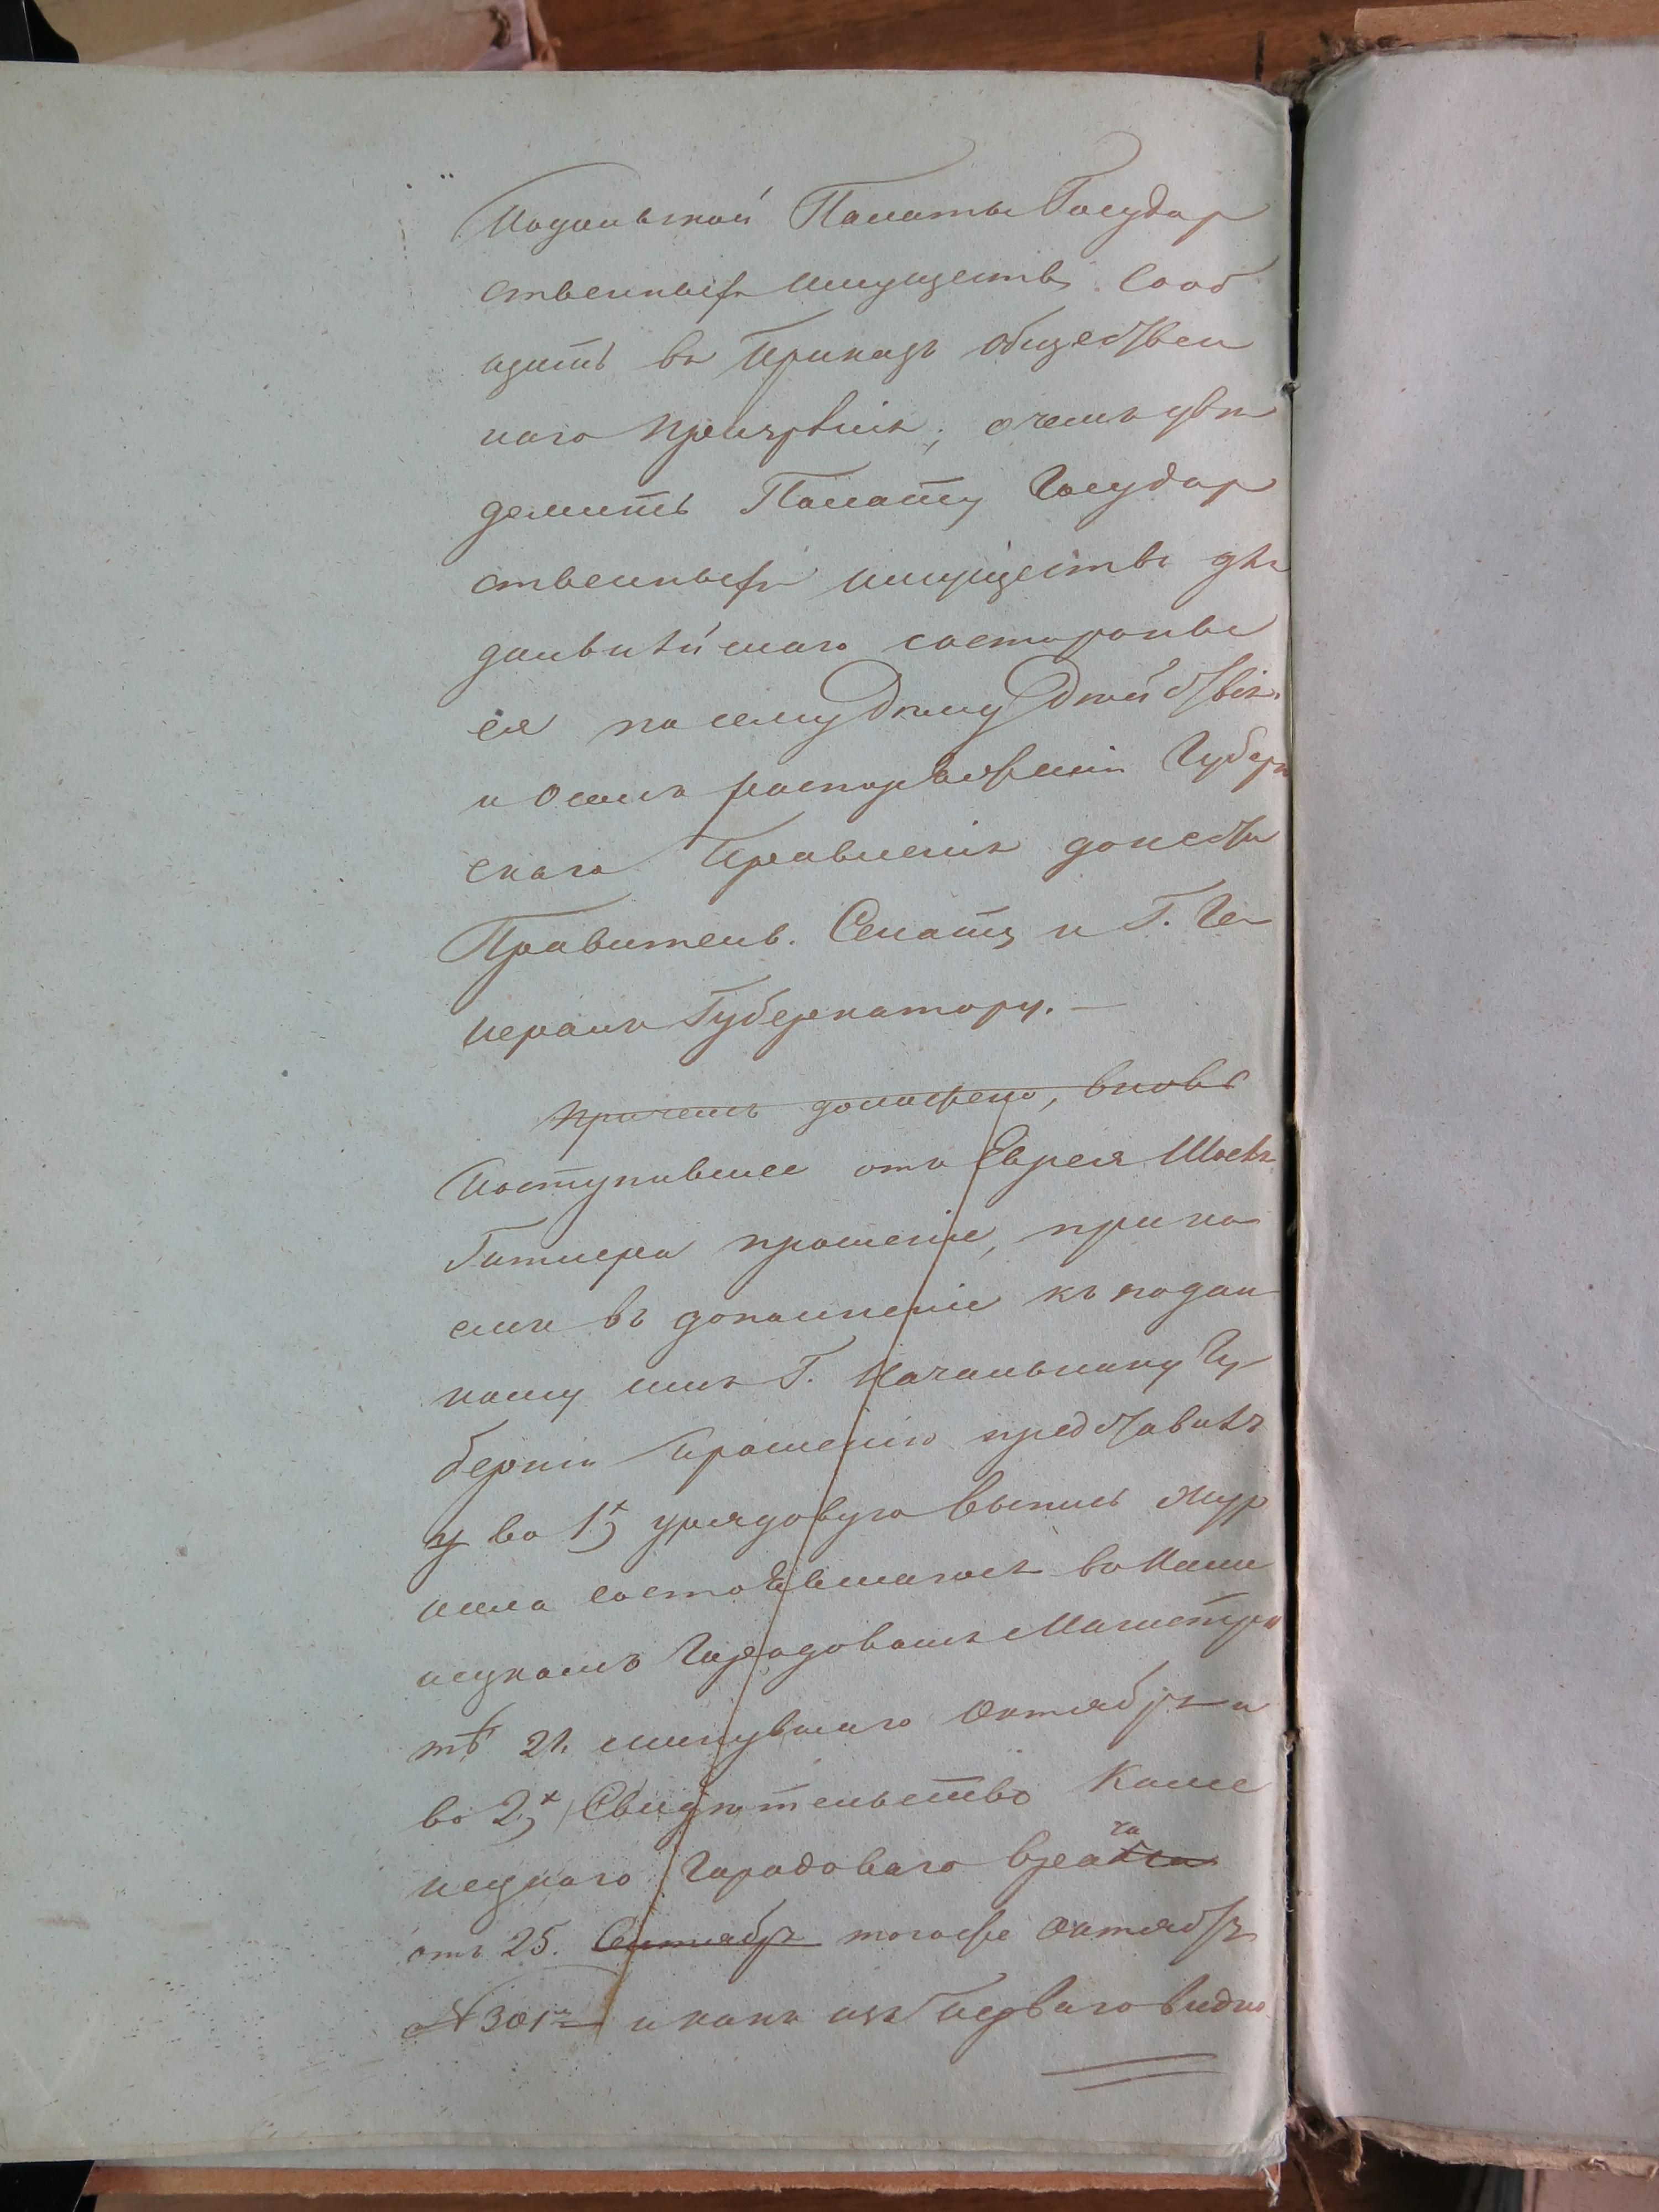 Подольской Палаты Государ
ственныхъ имуществъ. Сооб
щить въ Приказъ обществен
наго призрѣнія, о чемъ увѣ
домить Палату Государ
ственныхъ имуществъ для
дальнѣйшаго состороны
ея по сему дѣлу дѣйствія
и о семъ распоряженіи Губерн
скаго Правленія донести
Правительв. Сенату и Г. Ге
нералъ Губернатору. —
При чемъ доложено, вновь
поступившее отъ Еврея
прошеніе, при ко
емъ въ дополненіе къ подан
ному имъ Г. Начальнику Гу
берніи прошенію представилъ
у во 1х) урядовую выпись жур
нала состоявшагося въ Каме
нецкомъ Городовомъ Магистра
тѣ 21. минувшаго Октября и
во 2х) Свидѣтельство Каме
нецкаго Городоваго врача
отъ 25. Сентября тогоже Октября
№ 301 и какъ изъ перваго видно